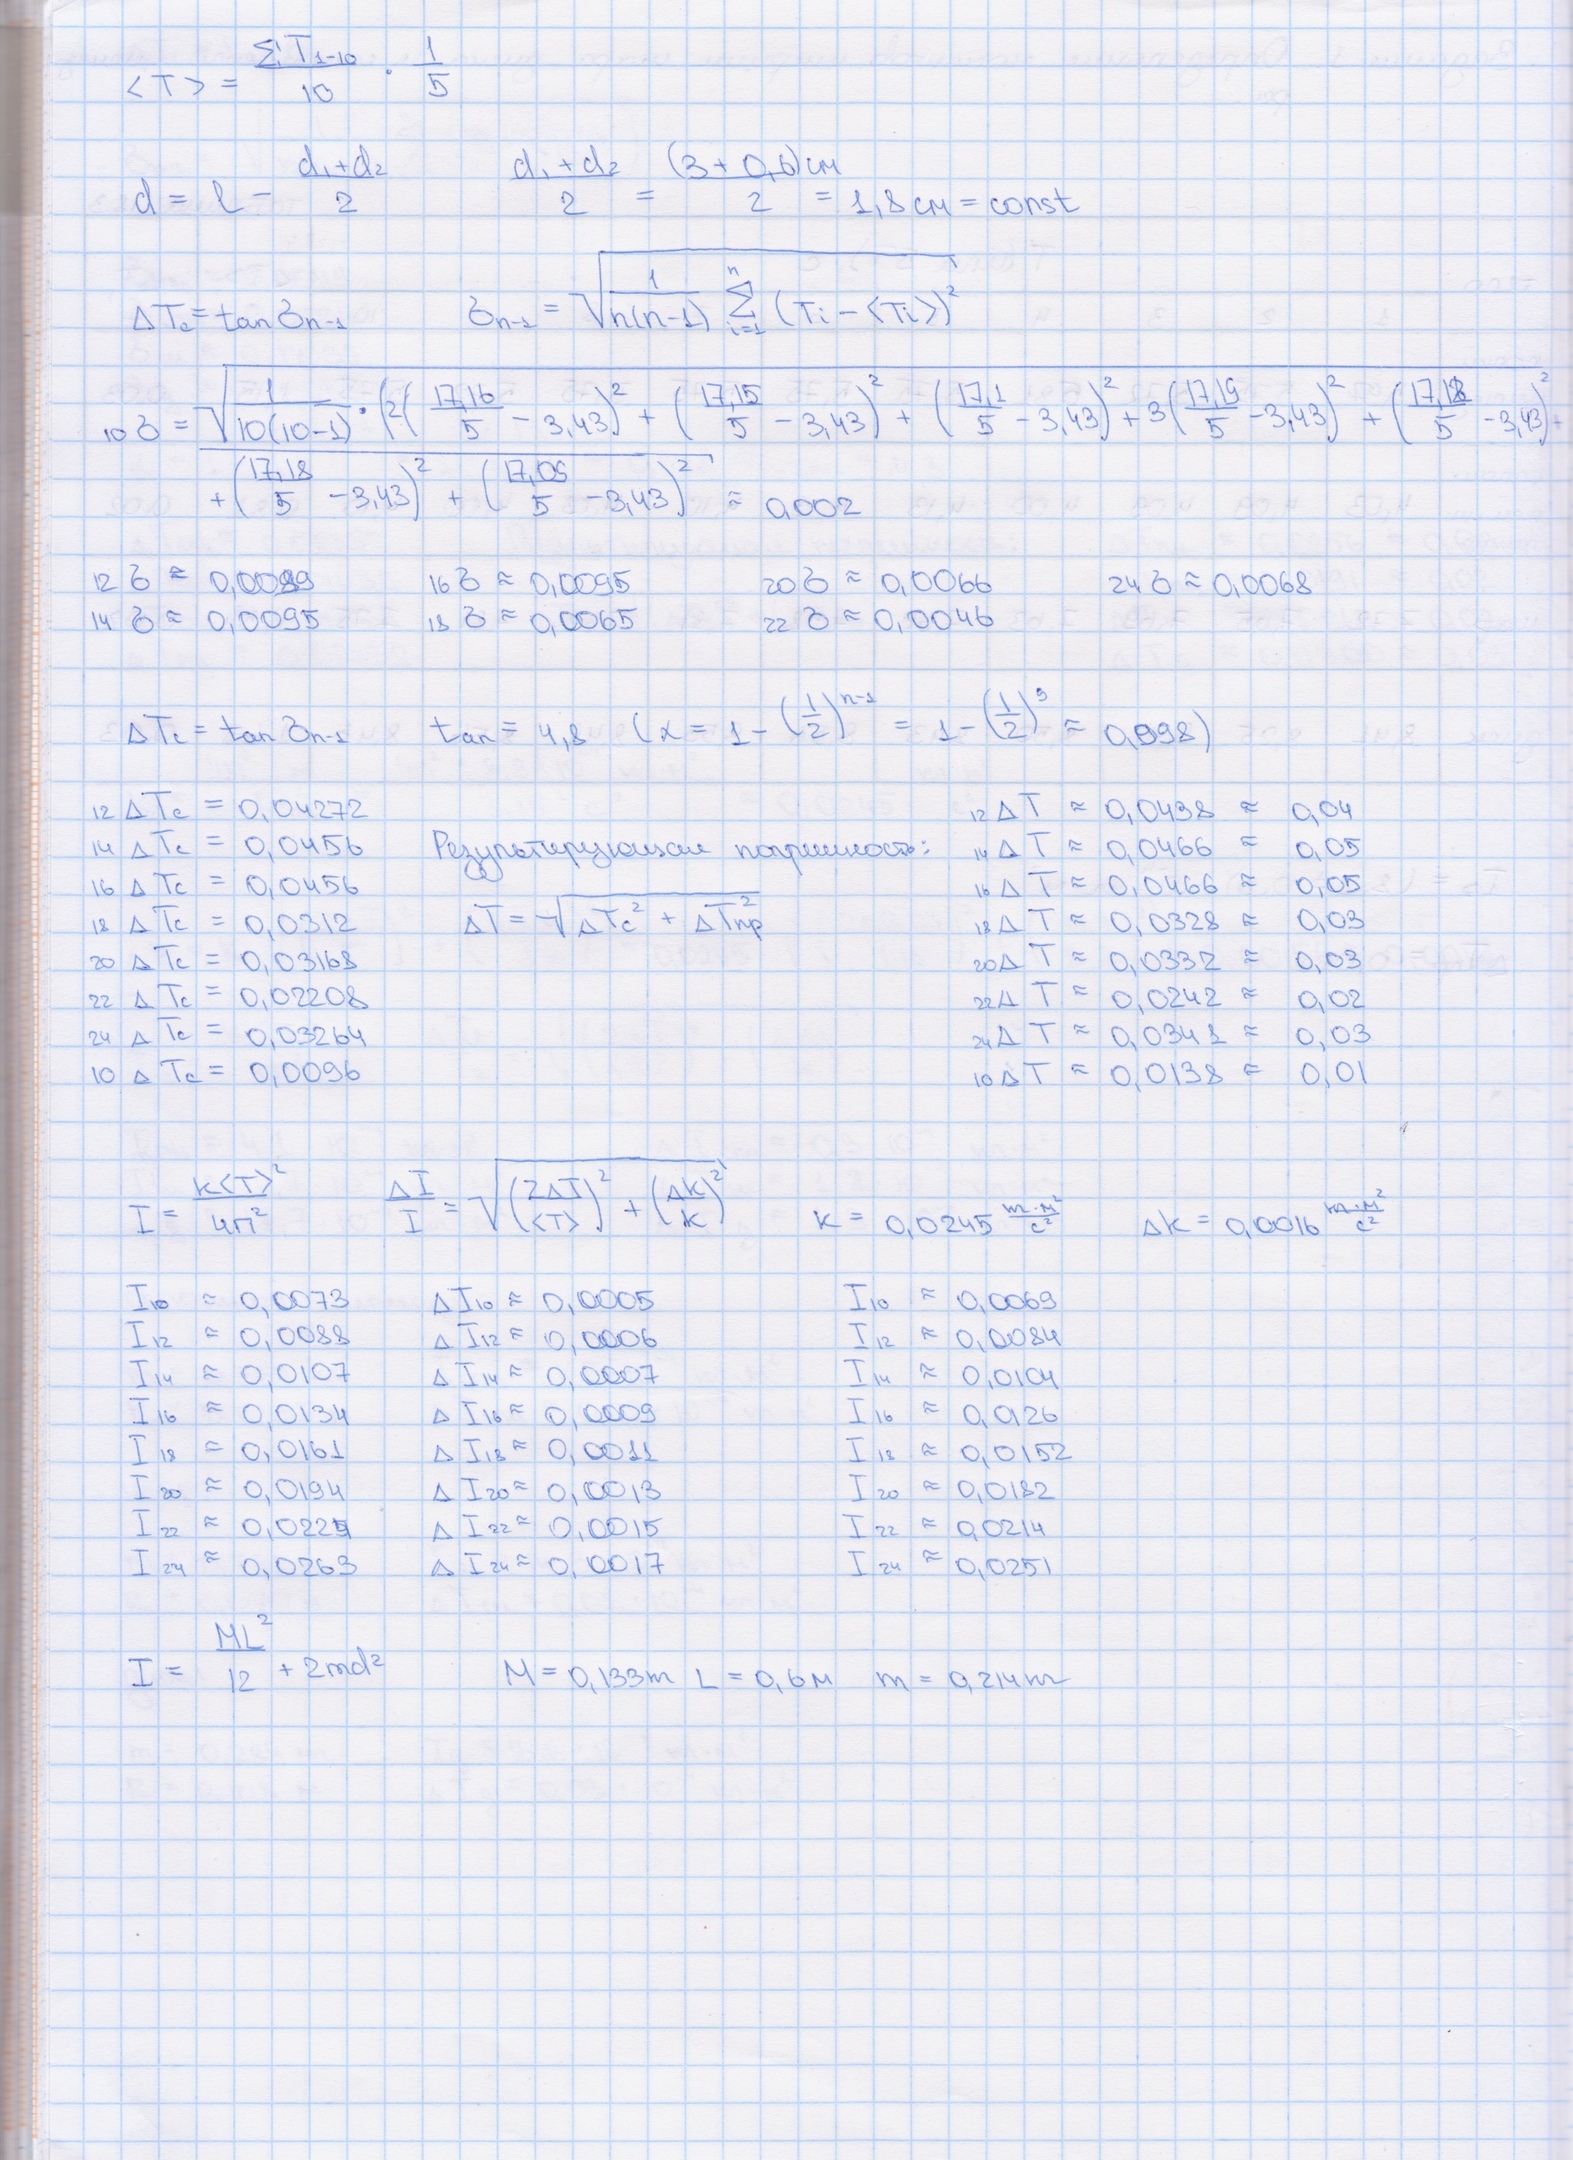 <T> = ΣT₁₋₁₀/10 · 1/5
d = l - (d₁+d₂)/2    (d₁+d₂)/2 = (3+0,6)см/2 = 1,8 см = const
ΔTс = tαn σn-1    σn-1 = √(1/(n(n-1)) Σ(i=1..n) (Ti - <Ti>)²)
10σ = √(1/(10(10-1)) · (2(17,16/5 - 3,43)² + (17,15/5 - 3,43)² + (17,1/5 - 3,43)² + 3(17,19/5 - 3,43)² + (17,18/5 - 3,43)² +
+ (17,18/5 - 3,43)² + (17,09/5 - 3,43)² ≈ 0,002
12σ ≈ 0,0089    16σ ≈ 0,0095    20σ ≈ 0,0066    24σ ≈ 0,0068
14σ ≈ 0,0095    18σ ≈ 0,0065    22σ ≈ 0,0046
ΔTс = tαn σn-1    tαn = 4,8    (α = 1-(1/2)ⁿ⁻¹ = 1-(1/2)⁹ ≈ 0,998)
12 ΔTс = 0,04272    12ΔT ≈ 0,0438 ≈ 0,04
14 ΔTс = 0,0456    Результирующая погрешность:    14ΔT ≈ 0,0466 ≈ 0,05
16 ΔTс = 0,0456    16ΔT ≈ 0,0466 ≈ 0,05
18 ΔTс = 0,0312    ΔT = √(ΔTс² + ΔTпр²)    18ΔT ≈ 0,0328 ≈ 0,03
20 ΔTс = 0,03168    20ΔT ≈ 0,0332 ≈ 0,03
22 ΔTс = 0,02208    22ΔT ≈ 0,0242 ≈ 0,02
24 ΔTс = 0,03264    24ΔT ≈ 0,0341 ≈ 0,03
10 ΔTс = 0,0096    10ΔT ≈ 0,0138 ≈ 0,01
I = k<T>²/4π²    ΔI/I = √((2ΔT/<T>)² + (Δk/k)²)    k = 0,0245 кг·м²/с²    Δk = 0,0016 кг·м²/с²
I10 ≈ 0,0073    ΔI10 ≈ 0,0005    I10 ≈ 0,0069
I12 ≈ 0,0088    ΔI12 ≈ 0,0006    I12 ≈ 0,0084
I14 ≈ 0,0107    ΔI14 ≈ 0,0007    I14 ≈ 0,0104
I16 ≈ 0,0134    ΔI16 ≈ 0,0009    I16 ≈ 0,0126
I18 ≈ 0,0161    ΔI18 ≈ 0,0011    I18 ≈ 0,0152
I20 ≈ 0,0194    ΔI20 ≈ 0,0013    I20 ≈ 0,0182
I22 ≈ 0,0229    ΔI22 ≈ 0,0015    I22 ≈ 0,0214
I24 ≈ 0,0263    ΔI24 ≈ 0,0017    I24 ≈ 0,0251
I = ML²/12 + 2md²    M = 0,133кг    L = 0,6м    m = 0,214кг